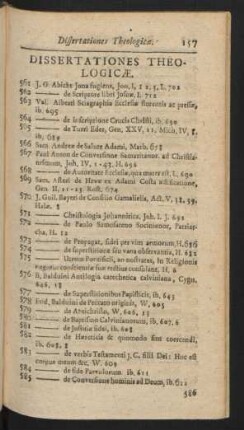 Dissertationes Theologicæ. 157
DISSERTATIONES THEO-
LOGICÆ.
561 J. G. Abicht Jona fugiens, Jon. I, 1 2. 5, L. 702
562 —— de Scriptore libri Josuæ. L. 712
563 Val. Alberti Sciagraphia Ecclesiæ
ib. 605
564 —— de Inscriptione Crucis Christi. ib. 630
565 —— de Turri Eder, Gen. XXV, 21. Mich. IV, 8.
ib. 689
566 Sam. Andreæ de Salute Adami, Marb. 678
567 Paul Anton de Conversione Samaritanor. ad Christia-
nismum, Joh. IV, 1-43. H. 696
568 —— de Autoritate Ecclesiæ, qua mater est. L. 690
569 Sam. Afseti de Heva ex Adami Costa ædificatione,
Gen. II. 21-23 Rost. 674
570 J. Guil. Bajeri de Consilio Gamalielis, Act. V, 38. 39.
Halæ.
571 —— Christologia Johannitica, Joh. I. J. 692
572 —— de Paulo
H. 12
573 —— de Purgat. fidei per vim armorum. H. 686
574 —— de superstitione seu vara observantia, H. 685
575 —— Utrum Pontificii, an nostrates, in Religionis
conscientia suæ rectius consulant, H. 8
576 B. Balduini Antilogia catechetica calviniana, Cyga.
646, 18
577 —— de Superstitionibus Papisticis, ib. 645
578 Frid. Balduini de Peccato originis, W. 605
579 —— de W. 606, 13
580 —— de Baptismo Calvinianorum, ib. 607, 6
581 —— de Justitia fidei, ib. 608
582 —— de Hæreticis & quomodo sint coercendi,
ib. 608, 8
583 —— de verbis Testamenti J. C. filii Dei: Hoc est
corpus meum &c. W. 609
584 —— de fide Parvulorum. ib. 611
585 —— de Conversione hominis ad Deum, ib. 612
586